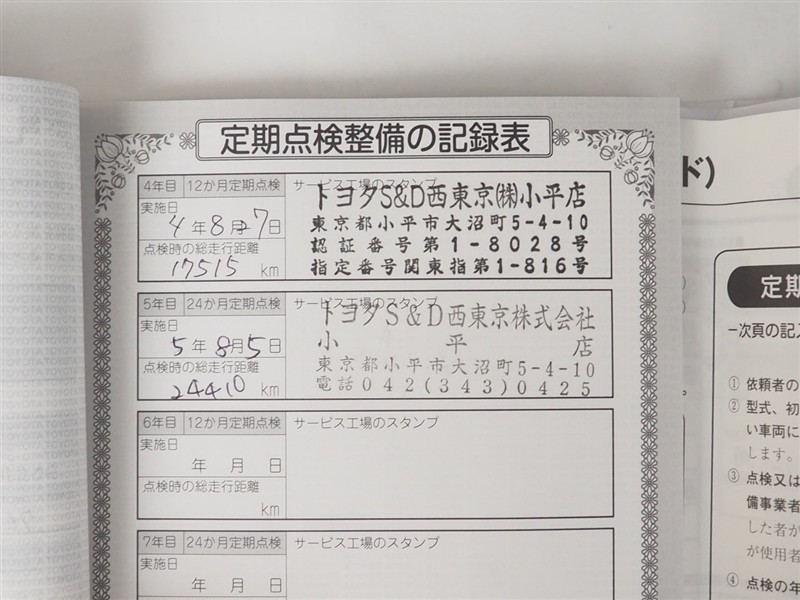 定期点検整備の記録表
4年目 12か月定期点検 サービス工場のスタンプ
実施日
4年8月7日
点検時の総走行距離
17515 km
トヨタS&D西東京㈱小平店
東京都小平市大沼町5-4-10
認証番号第1-8028号
指定番号関東指第1-816号
5年目 24か月定期点検 サービス工場のスタンプ
実施日
5年8月5日
点検時の総走行距離
24410 km
トヨタS&D西東京株式会社
小平店
東京都小平市大沼町5-4-10
電話042(343)0425
6年目 12か月定期点検 サービス工場のスタンプ
実施日
年 月 日
点検時の総走行距離
km
7年目 24か月定期点検 サービス工場のスタンプ
実施日
年 月 日
ド)
定期
−次頁の記入
① 依頼者の
② 型式、初
い車両に
します。
③ 点検又は
備事業者
した者が
が使用者
④ 点検の年